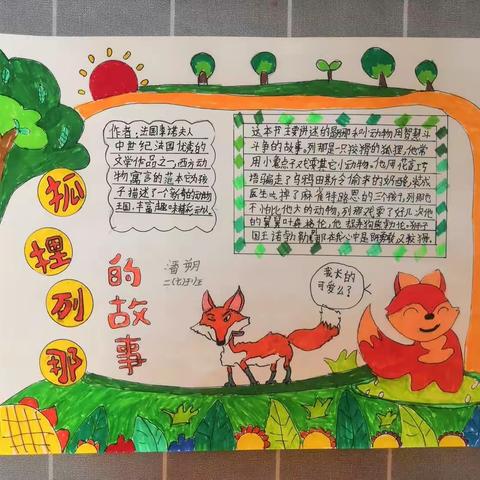 狐狸列那
的故事
作者:法国季诺夫人
中世纪法国优秀的
文学作品之一,西方动
物寓言的范本它为孩
子描述了一个新奇的动物
王国,丰富趣味
这本书主要讲述的列那和小动物用智慧斗
争的故事。列那是一只狡猾的狐狸,他常
用小聪
骗走了乌鸦田斯令偷来的奶酪,装成
医生吃掉了麻雀特路思的三个孩子,列那也
不怕比他大的动物,列那戏耍了好几次他
的舅舅叶森格伦,他
国王诺勃勒
潘朔
二(七)班
我长的
可爱么?